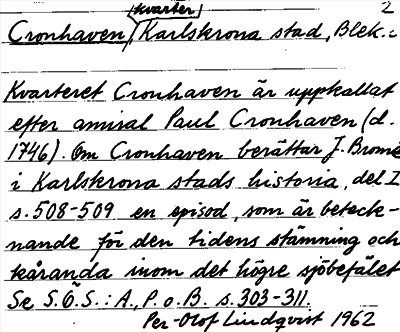 kvarter 2
Cronhaven, Karlskrona stad, Blek.:
Kvarteret Cronhaven är uppkallat
efter amiral Paul Cronhaven (d.
1746). Om Cronhaven berättar J. Bromé
i Karlskrona stads historia, del I
s. 508-509 en episod, som är beteck-
nande för den tidens stämning och
kåranda inom det högre sjöbefälet
Se S.Ö.S.: A., P. o. B. s. 303-311.
Per-Olof Lindqvist 1962